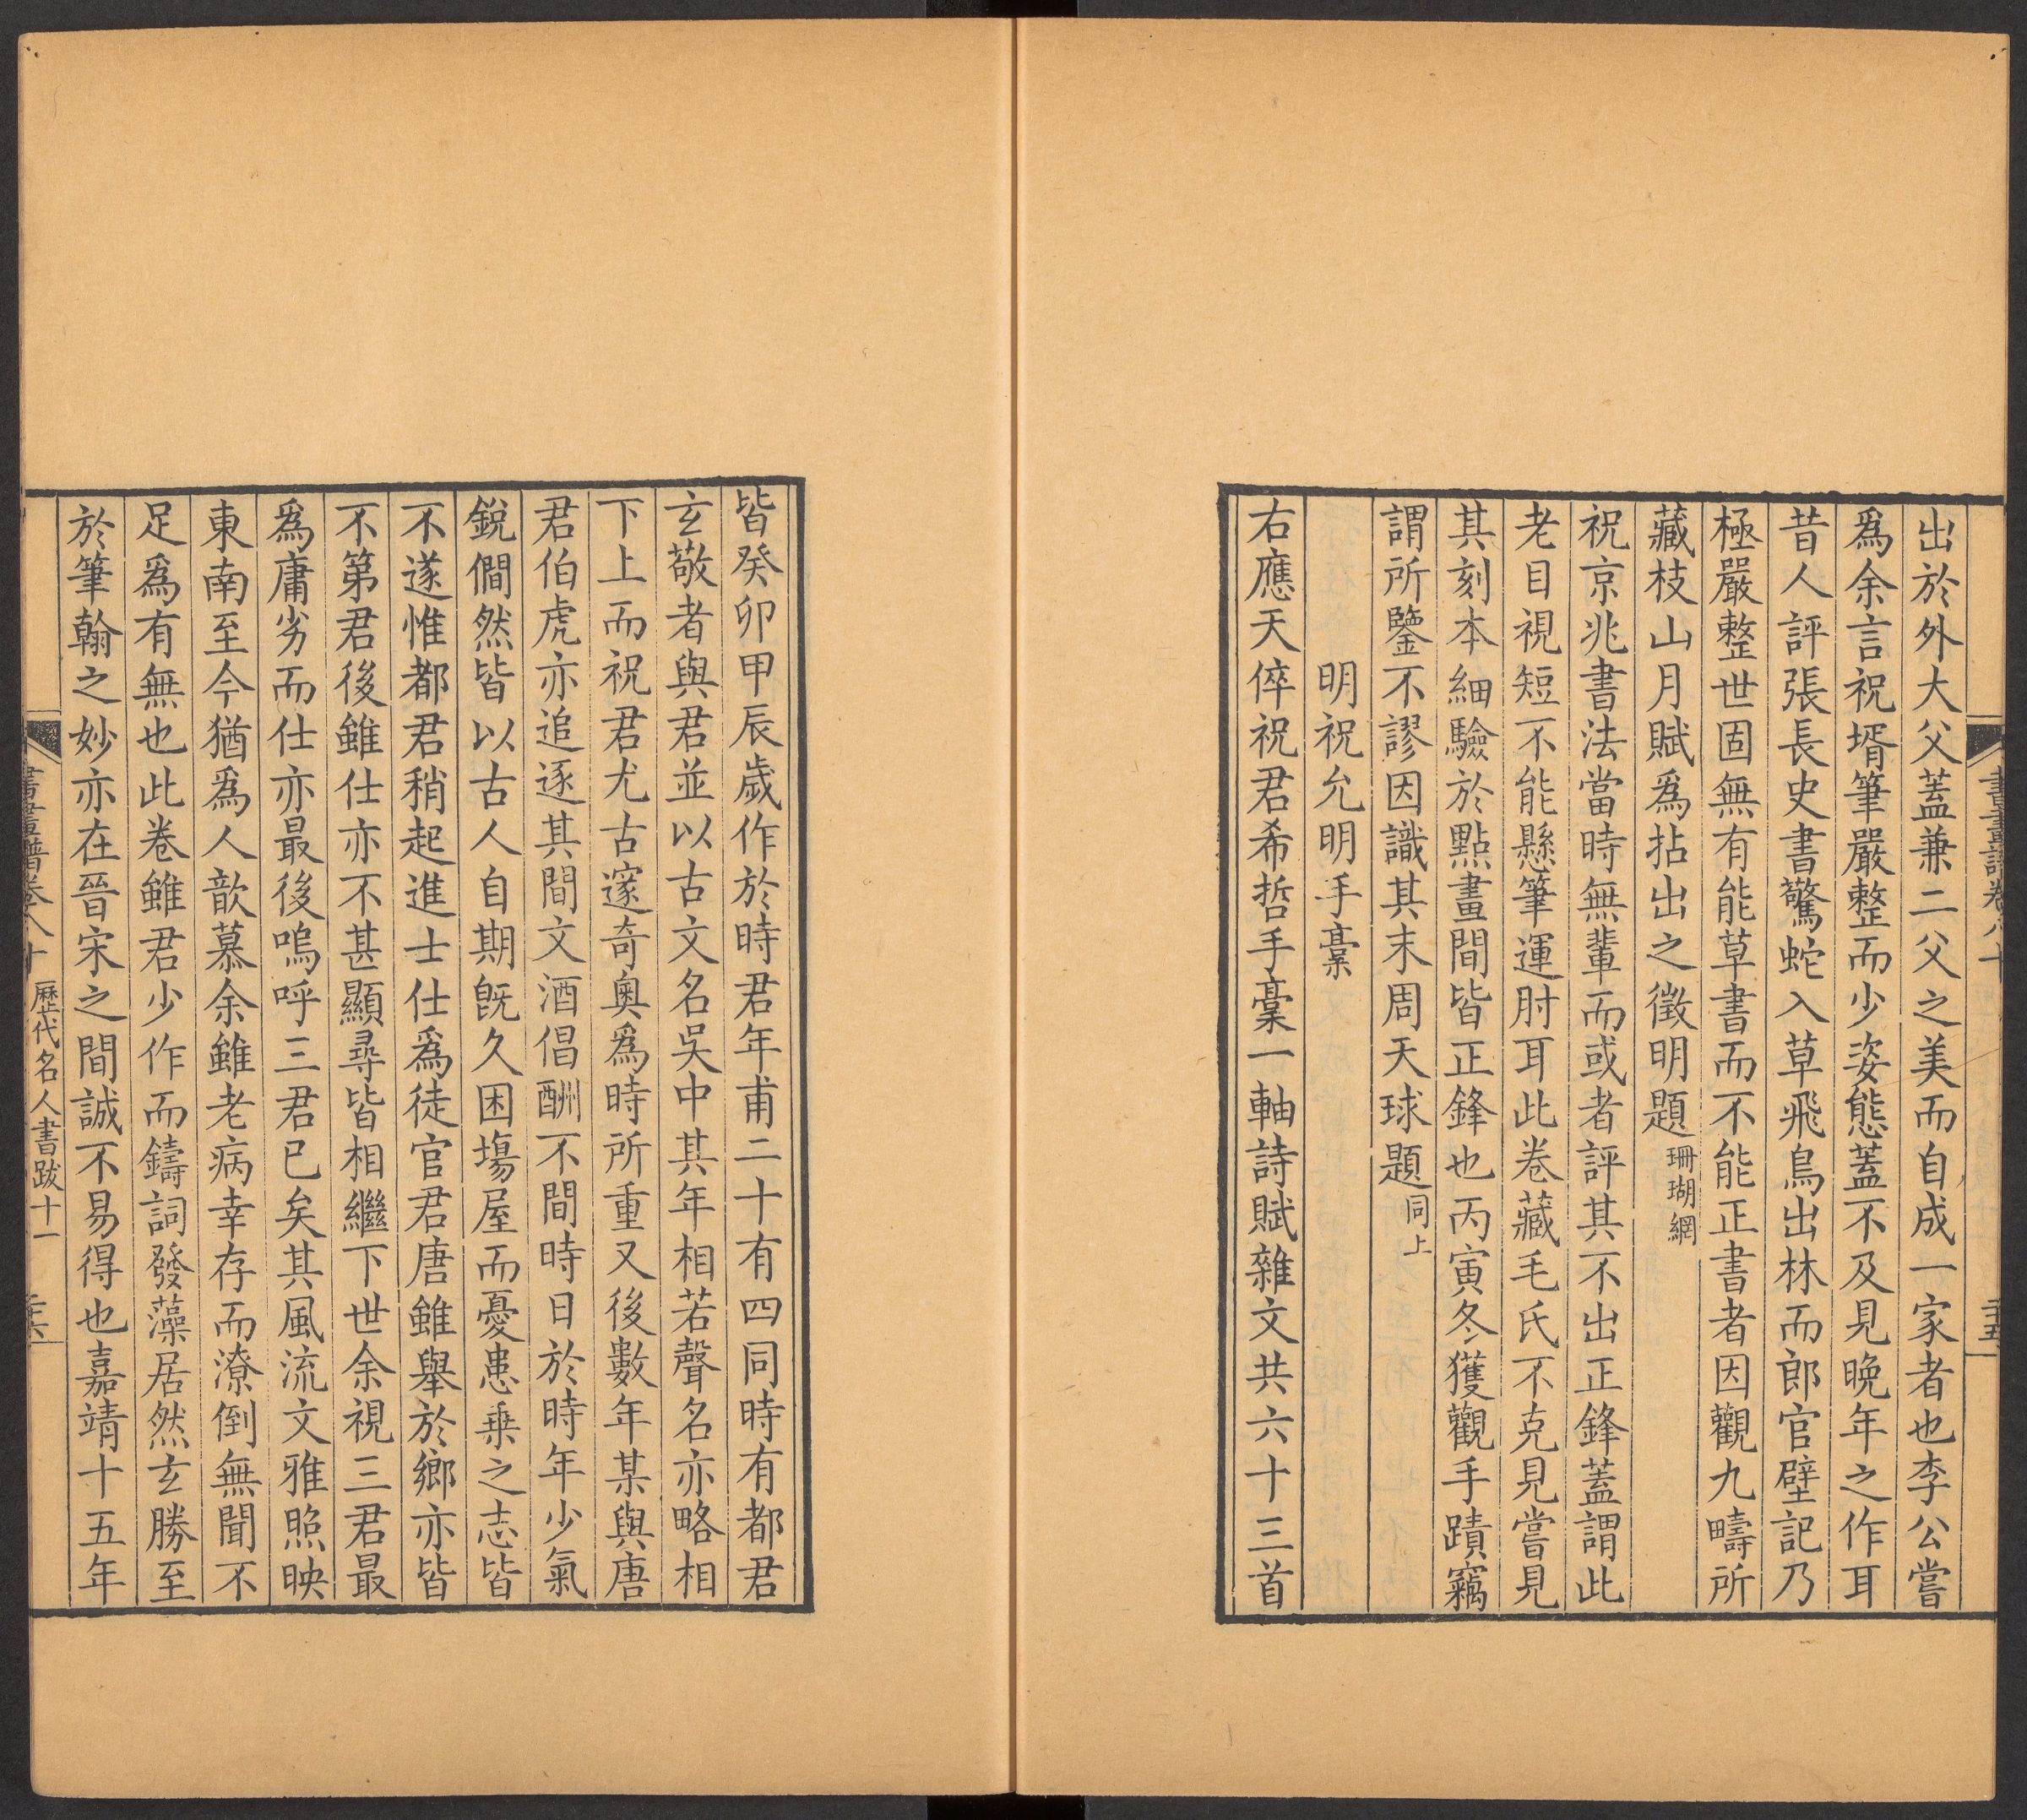 出於外大父蓋兼二父之美而自成一家者也李公嘗
爲余言祝壻筆嚴整而少姿態蓋不及見晚年之作耳
昔人評張長史書驚蛇入草飛鳥出林而郎官壁記乃
極嚴整世固無有能草書而不能正書者因觀九疇所
藏枝山月賦爲拈出之徵明題珊瑚網
祝京兆書法當時無輩而或者評其不出正鋒蓋謂此
老目視短不能懸筆運肘耳此卷藏毛氏不克見嘗見
其刻本細驗於點畫間皆正鋒也丙寅冬獲觀手蹟竊
謂所鑒不謬因識其末周天球題同上
明祝允明手稾
右應天倅祝君希哲手稾一軸詩賦雜文共六十三首
皆癸卯甲辰歲作於時君年甫二十有四同時有都君
玄敬者與君並以古文名吳中其年相若聲名亦略相
下上而祝君尤古邃奇奧爲時所重又後數年某與唐
君伯虎亦追逐其間文酒倡酬不間時日於時年少氣
銳僩然皆以古人自期旣久困塲屋而憂患乗之志皆
不遂惟都君稍起進士仕爲徒官君唐雖舉於鄉亦皆
不第君後雖仕亦不甚顯尋皆相繼下世余視三君最
爲庸劣而仕亦最後嗚呼三君已矣其風流文雅照映
東南至今猶爲人歆慕余雖老病幸存而潦倒無聞不
足爲有無也此卷雖君少作而鑄詞發藻居然玄勝至
於筆翰之妙亦在晉宋之間誠不易得也嘉靖十五年
書畫譜卷八十 歷代名人書跋十一